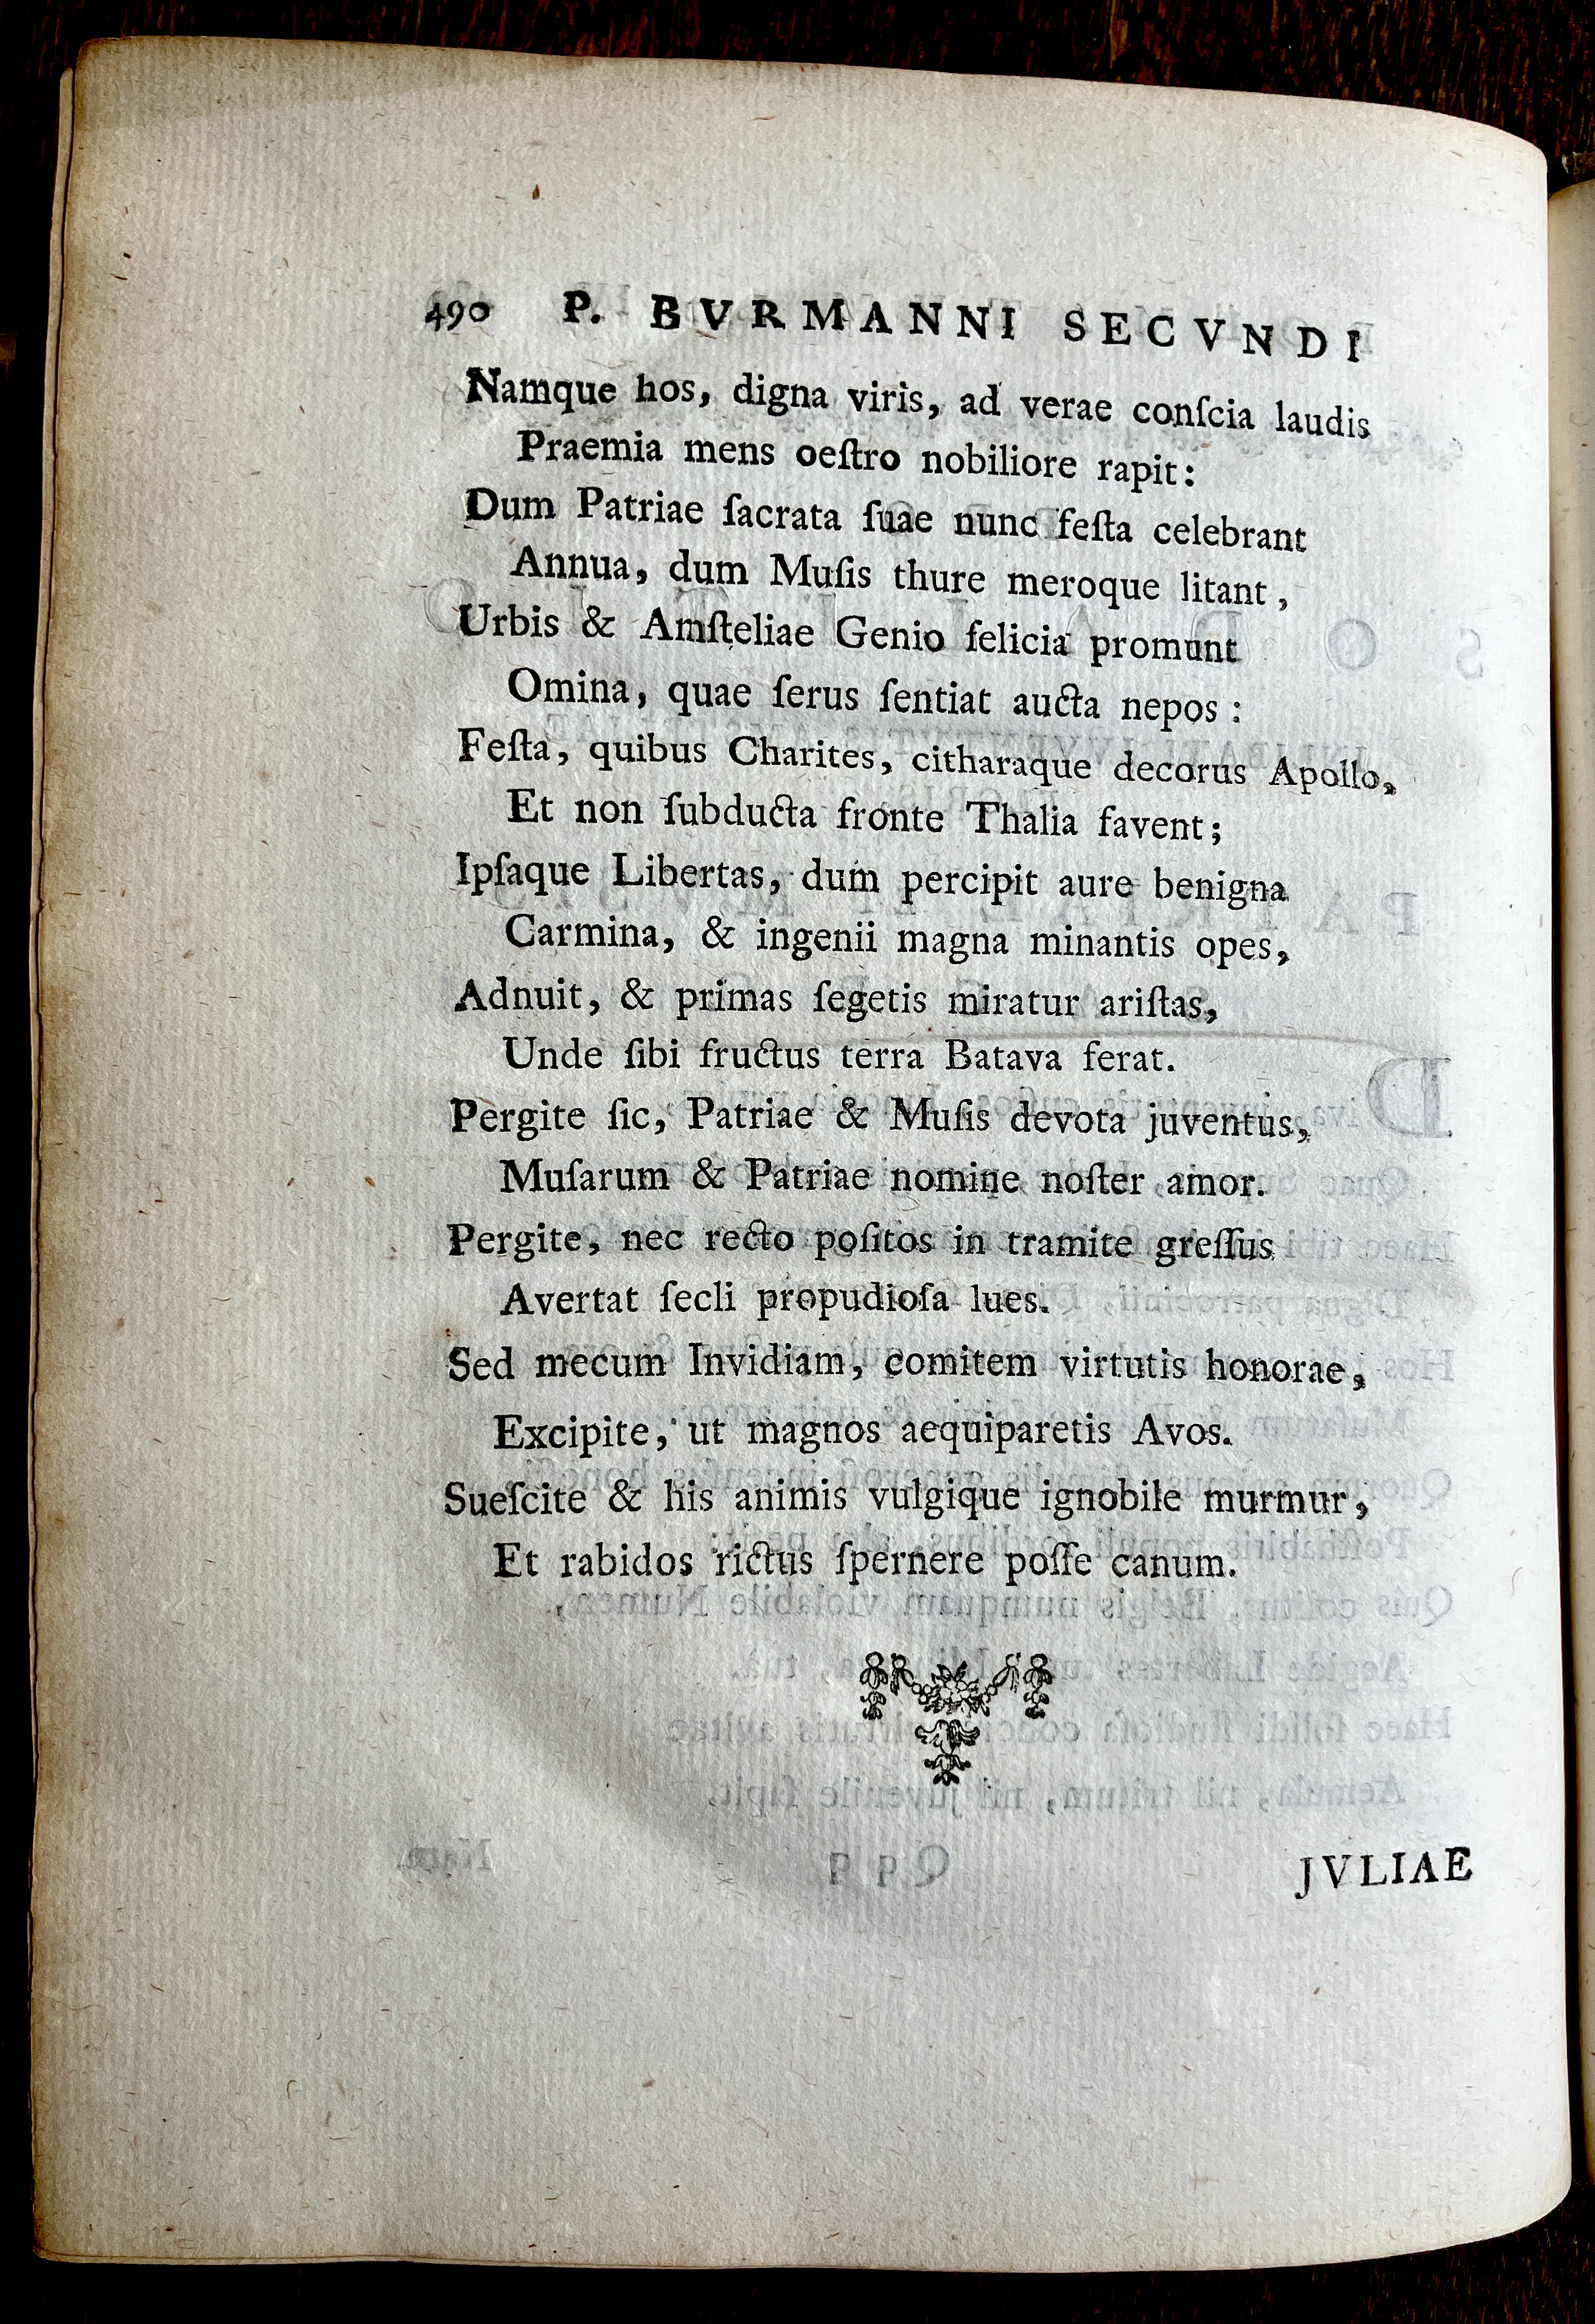 490 P. BVRMANNI SECVNDI
Namque hos, digna viris, ad verae conſcia laudis
Praemia mens oeſtro nobiliore rapit:
Dum Patriae ſacrata ſuae nunc feſta celebrant
Annua, dum Muſis thure meroque litant,
Urbis & Amſteliae Genio felicia promunt
Omina, quae ſerus ſentiat aucta nepos:
Feſta, quibus Charites, citharaque decorus Apollo,
Et non ſubducta fronte Thalia favent;
Ipſaque Libertas, dum percipit aure benigna
Carmina, & ingenii magna minantis opes,
Adnuit, & primas ſegetis miratur ariſtas,
Unde ſibi fructus terra Batava ferat.
Pergite ſic, Patriae & Muſis devota juventus,
Muſarum & Patriae nomine noſter amor.
Pergite, nec recto poſitos in tramite greſſus
Avertat ſecli propudioſa lues.
Sed mecum Invidiam, comitem virtutis honorae,
Excipite, ut magnos aequiparetis Avos.
Sueſcite & his animis vulgique ignobile murmur,
Et rabidos rictus ſpernere poſſe canum.
JVLIAE